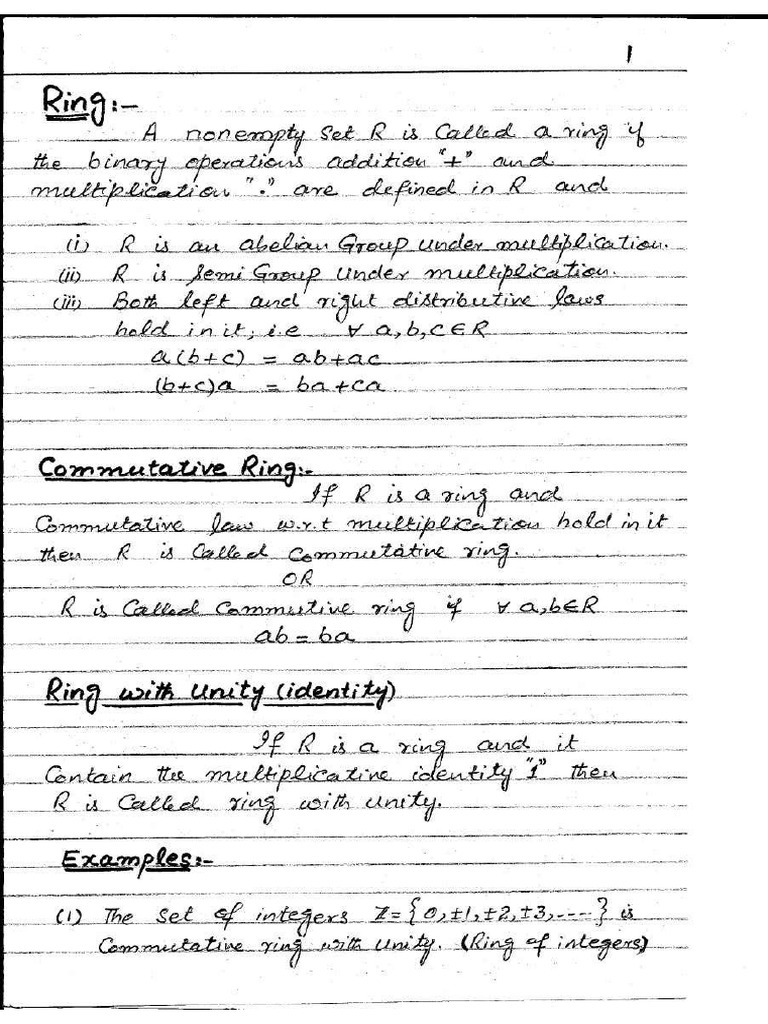 1
Ring:-
A nonempty set R is called a ring if
the binary operations addition "+" and
multiplication "." are defined in R and
(i) R is an abelian Group under multiplication.
(ii) R is semi Group under multiplication.
(iii) Both left and right distributive laws
hold in it, i.e ∀ a,b,c∈R
a(b+c) = ab+ac
(b+c)a = ba+ca
Commutative Ring:-
If R is a ring and
Commutative law w.r.t multiplication hold in it
then R is called commutative ring.
OR
R is called commutive ring if ∀ a,b∈R
ab = ba
Ring with Unity (identity)
If R is a ring and it
Contain the multiplicative identity "1" then
R is called ring with unity.
Examples:-
(1) The set of integers Z={0,±1,±2,±3,----} is
Commutative ring with unity. (Ring of integers)